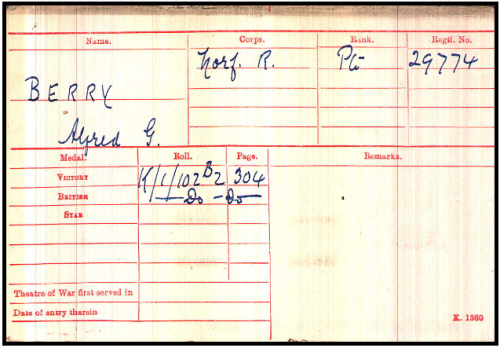 Name. Corps. Rank. Regtl. No.
Norf. R. Pte 29774
BERRY
Alfred G.
Medal. Roll. Page. Remarks.
VICTORY K/1/102 B2 304
BRITISH — Do — Do —
STAR
Theatre of War first served in
Date of entry therein
K. 1380